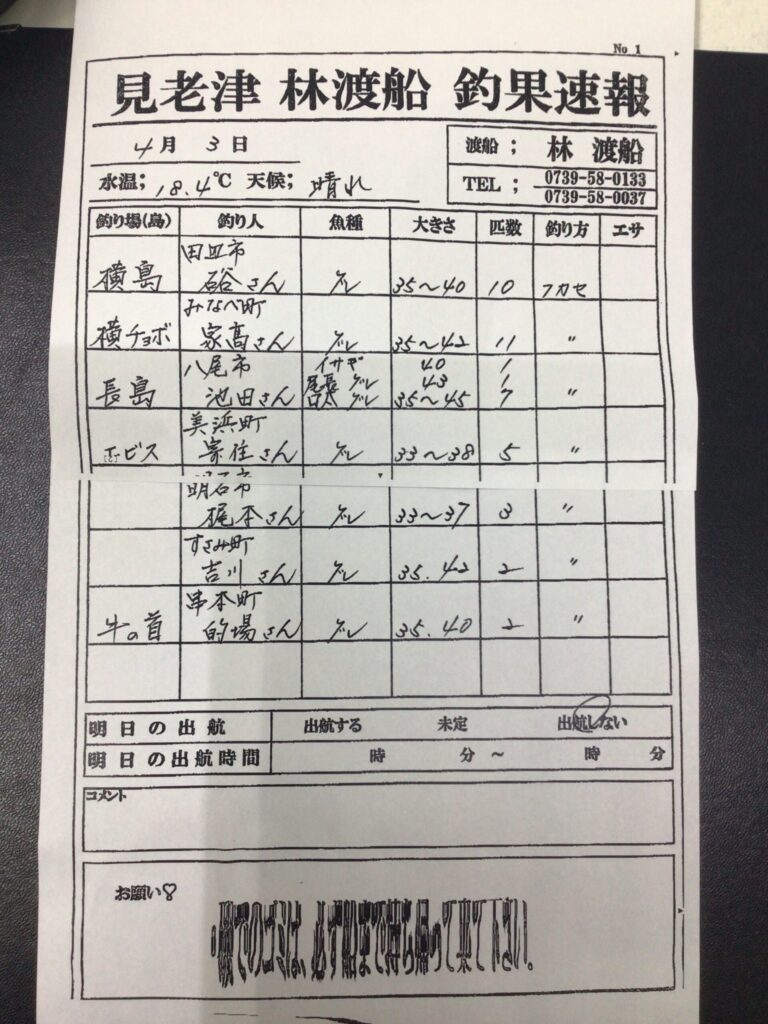 No 1
見老津 林渡船 釣果速報
4月 3日
渡船； 林 渡船
水温；18.4℃ 天候；晴れ
TEL； 0739-58-0133
0739-58-0037
釣り場(島) 釣り人 魚種 大きさ 匹数 釣り方 エサ
田辺市
横島 さん グレ 35〜40 10 フカセ
みなべ町
横チョボ 家高さん グレ 35〜42 11 〃
八尾市 イサギ 40 1
尾長グレ 43 1
長島 池田さん 口太グレ 35〜45 7 〃
美浜町
エビス 寄住さん グレ 33〜38 5 〃
明石市
梶本さん グレ 33〜37 3 〃
すさみ町
吉川さん グレ 35.42 2 〃
串本町
牛の首 的場さん グレ 35.40 2 〃
明日の出航 出航する 未定 出航しない
明日の出航時間 時 分〜 時 分
コメント
お願い♡
磯でのゴミは、必ず船まで持ち帰って来て下さい。